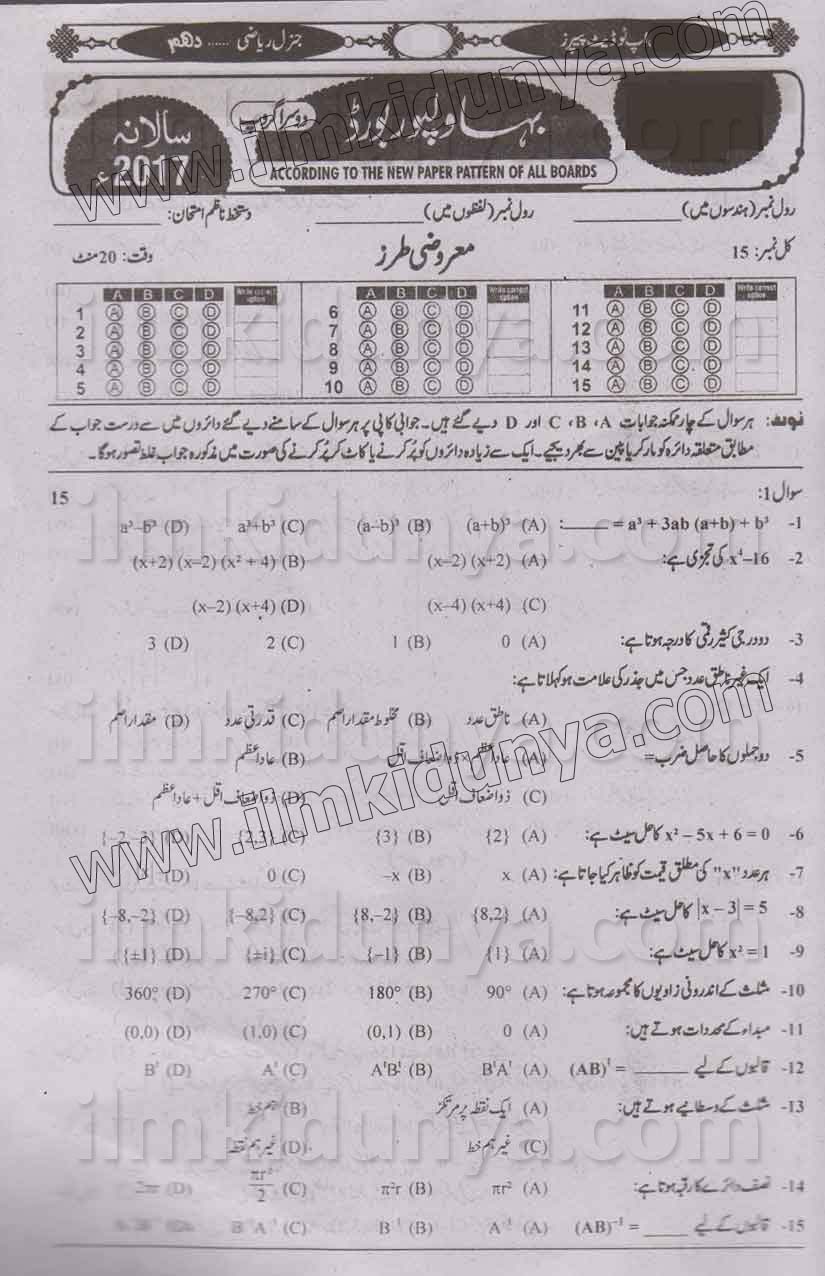 اپ ٹو ڈیٹ پیپرز
جنرل ریاضی ...... دہم
بہاولپور بورڈ
دوسرا گروپ
سالانہ
2017ء
ACCORDING TO THE NEW PAPER PATTERN OF ALL BOARDS
www.ilmkidunya.com
رول نمبر (ہندسوں میں) ________ رول نمبر (لفظوں میں) ________ دستخط ناظم امتحان: ________
کل نمبر: 15 معروضی طرز وقت: 20 منٹ
A B C D Write correct option A B C D Write correct option A B C D Write correct option
1 A B C D 6 A B C D 11 A B C D
2 A B C D 7 A B C D 12 A B C D
3 A B C D 8 A B C D 13 A B C D
4 A B C D 9 A B C D 14 A B C D
5 A B C D 10 A B C D 15 A B C D
نوٹ: ہر سوال کے چار ممکنہ جوابات A، B، C اور D دیے گئے ہیں۔ جوابی کاپی پر ہر سوال کے سامنے دیے گئے دائروں میں سے درست جواب کے
مطابق متعلقہ دائرہ کو مارکر یا پین سے بھر دیجیے۔ ایک سے زیادہ دائروں کو پُر کرنے یا کاٹ کر پُر کرنے کی صورت میں مذکورہ جواب غلط تصور ہوگا۔
سوال 1: 15
1- a³ + 3ab (a+b) + b³ = ____: (A) (a+b)³ (B) (a–b)³ (C) a³+b³ (D) a³–b³
2- x⁴–16 کی تجزی ہے: (A) (x–2) (x+2) (B) (x+2) (x–2) (x² + 4)
(C) (x–4) (x+4) (D) (x–2) (x+4)
3- دو درجی کثیر رقمی کا درجہ ہوتا ہے: (A) 0 (B) 1 (C) 2 (D) 3
4- ایک غیر ناطق عدد جس میں جذر کی علامت ہو کہلاتا ہے:
(A) ناطق عدد (B) مخلوط مقدار اصم (C) قدرتی عدد (D) مقدار اصم
5- دو جملوں کا حاصل ضرب = (A) عاد اعظم × ذواضعاف اقل (B) عاد اعظم
(C) ذواضعاف اقل (D) ذواضعاف اقل + عاد اعظم
6- x² – 5x + 6 = 0 کا حل سیٹ ہے: (A) {2} (B) {3} (C) {2,3} (D) {–2,–3}
7- ہر عدد "x" کی مطلق قیمت کو ظاہر کیا جاتا ہے: (A) x (B) –x (C) 0 (D)
8- |x – 3| = 5 کا حل سیٹ ہے: (A) {8,2} (B) {8,–2} (C) {–8,2} (D) {–8,–2}
9- x² = 1 کا حل سیٹ ہے: (A) {1} (B) {–1} (C) {±i} (D) {±1}
10- مثلث کے اندرونی زاویوں کا مجموعہ ہوتا ہے: (A) 90° (B) 180° (C) 270° (D) 360°
11- مبداء کے محددات ہوتے ہیں: (A) 0 (B) (0,1) (C) (1,0) (D) (0,0)
12- قالبوں کے لیے ____ = (AB)ᵗ (A) BᵗAᵗ (B) AᵗBᵗ (C) Aᵗ (D) Bᵗ
13- مثلث کے وسطانیے ہوتے ہیں: (A) ایک نقطہ پر مرتکز (B) ہم خط
(C) غیر ہم خط (D) غیر ہم نقطہ
14- نصف دائرے کا رقبہ ہوتا ہے: (A) πr² (B) π²r (C) πr²/2 (D) 2πr
15- قالبوں کے لیے ____ = (AB)⁻¹ (A) A⁻¹ (B) B⁻¹ (C) B⁻¹A⁻¹ (D)